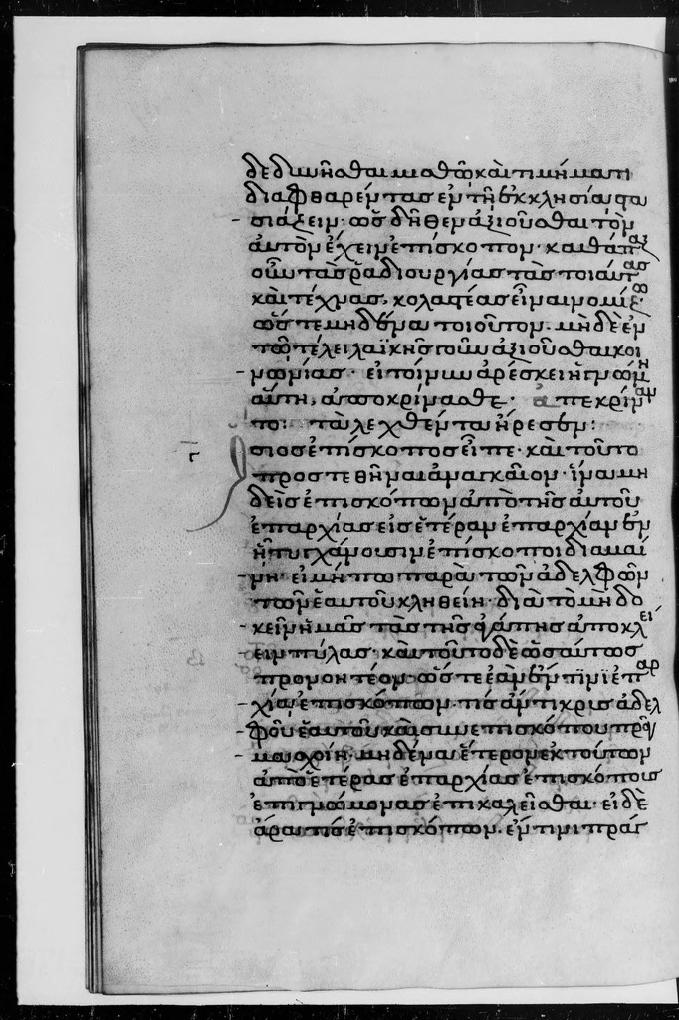 δεδυνῆσθαι μισθῷ καὶ τιμήματι
διαφθαρέντας ἐν τῆ ἐκκλησία στα
σιάζειν· ὡς δῆθεν ἀξιοῦσθαι τὸν
ἀυτὸν ἔχειν ἐπίσκοπον· καθάπαξ
οὖν τὰς ῥαδιουργίας τὰς τοιαύτας
καὶ τέχνας, κολαστέας εἶναι νομίζω·
ὥστε μηδένα τοιοῦτον. μηδὲ ἐν
τῶ τέλει λαϊκῆς γοῦν ἀξιοῦσθαι κοι
νωνίας· εἰ τοίνυν ἀρέσκει ἡ γνώμη
αὕτη, ἀποκρίνασθε· ἀπεκρίναν
το: τὰ λεχθέντα ἤρεσεν:
σιος ἐπίσκοπος εἶπε· καὶ τοῦτο
προστεθῆναι ἀναγκαῖον· ἵνα μη
δεὶς ἐπισκόπων ἀπὸ τῆς ἀυτοῦ
ἐπαρχίας εἰς ἑτέραν ἐπαρχίαν ἐν
ἧ τυγχάνουσιν ἐπίσκοποι διαβαί
νη· εἰ μή που παρὰ τῶν ἀδελφῶν
τῶν ἑαυτοῦ κληθείη· διὰ τὸ μὴ δο
κεῖν ἡμᾶς τὰς τῆς ἀγάπης ἀποκλεί
ειν πύλας· καὶ τοῦτο δὲ ὡσαύτως
προνοητέον· ὥστε ἐὰν ἔν τινι ἐπαρ
χία ἐπισκόπων. τίς ἄντικρις ἀδελ
φοῦ ἑαυτοῦ καὶ συνεπισκόπου πρᾶγ
μα σχοίη· μηδένα ἕτερον ἐκ τούτων
ἀπὸ ἑτέρας ἐπαρχίας ἐπισκόπους
ἐπιγνώμονας ἐπικαλεῖσθαι· εἰ δὲ
ἄρα τίς ἐπισκόπων. ἔν τινι πράγ